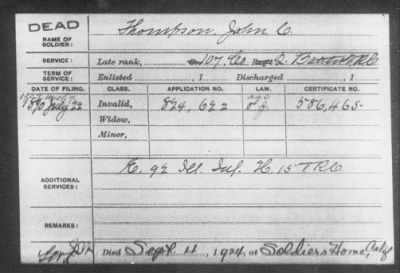 DEAD
NAME OF SOLDIER:
Thompson, John C
SERVICE:
Late rank, 107. Co. 2. Batt V.R.C
TERM OF SERVICE:
Enlisted , 1 Discharged , 1
DATE OF FILING. CLASS. APPLICATION NO. LAW. CERTIFICATE NO.
July 22 Invalid, 824,622 586,465.
Widow,
Minor,
ADDITIONAL SERVICES:
E. 92 Ill Inf. H. 15 V.R.C
REMARKS:
Died Sept. 11, 1924, at Soldiers Home, Calif